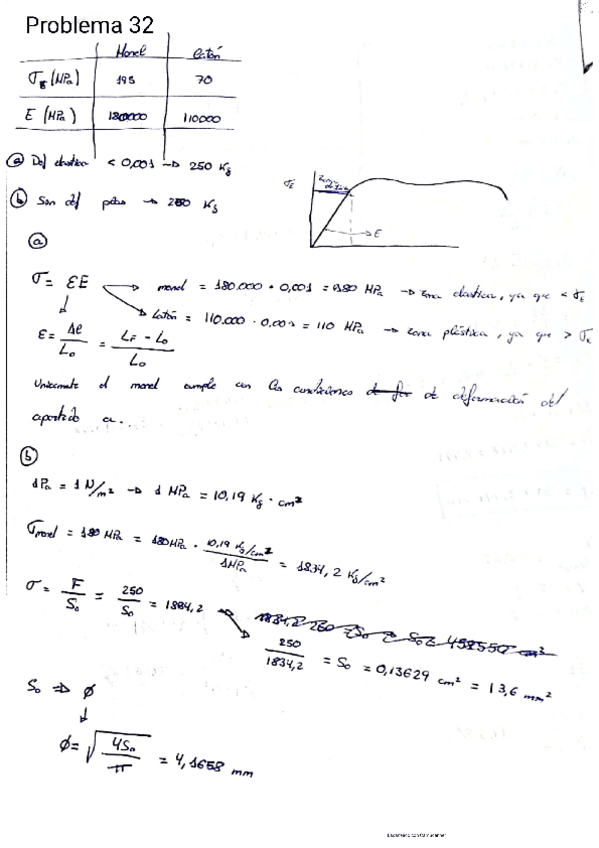 Problema 32
Monel Latón
σE (MPa) 195 70
E (MPa) 180000 110000
ⓐ Def elastica < 0,001 → 250 Kg
ⓑ Son def → 250 Kg
σE
Zona
E
ⓐ
σ = εE
monel = 180.000 · 0,001 = 180 MPa → zona elastica, ya que < σE
Latón = 110.000 · 0,001 = 110 MPa → zona plástica, ya que > σE
ε = Δl/L₀ = (LF - L₀)/L₀
Unicamente el monel cumple con las condiciones de deformación del
apartado a..
ⓑ
1Pa = 1 N/m² → 1 MPa = 10,19 Kg · cm²
σmonel = 180 MPa = 180MPa · (10,19 Kg/cm²)/(1MPa) = 1834,2 Kg/cm²
σ = F/S₀ = 250/S₀ = 1834,2
250/1834,2 = S₀ = 0,13629 cm² = 13,6 mm²
S₀ ⇒ ϕ
ϕ = √(4S₀/π) = 4,1658 mm